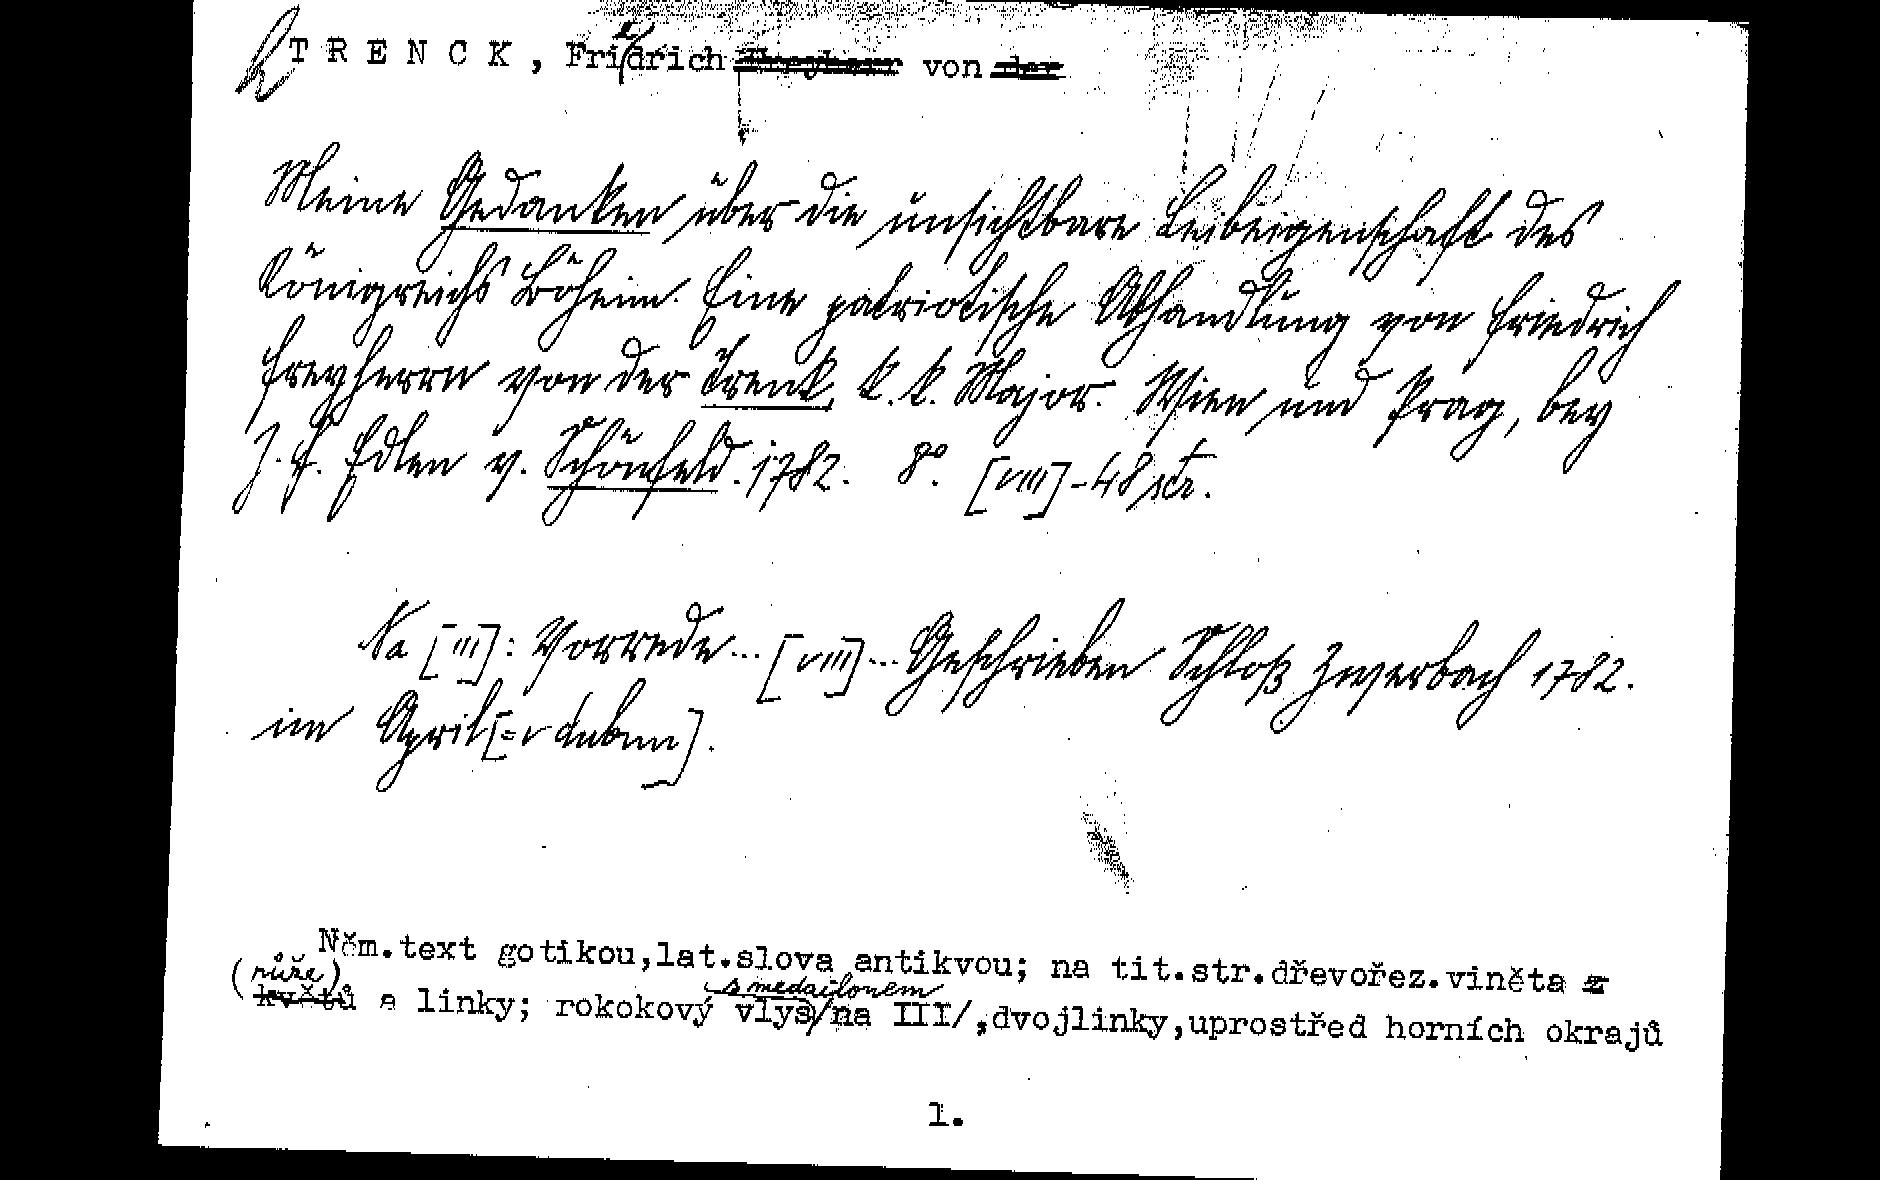 TRENCK, Friedrich von
Meine Gedanken über die unsichtbare Leibeigenschaft des
Königreichs Böheim. Eine patriotische Abhandlung von Friedrich
Freyherrn von der Trenk, k. k. Major. Wien und Prag, bey
J. F. Edlen v. Schönfeld. 1782. 8°. [VIII]-48 str.
Na [III]: Vorrede... [VIII]... Geschrieben Schloß Zwerbach 1782.
im April [= v dubnu].
Něm.text gotikou,lat.slova antikvou; na tit.str.dřevořez.viněta
(růže) a linky; rokokový vlys s medailonem /na III/,dvojlinky,uprostřed horních okrajů
1.